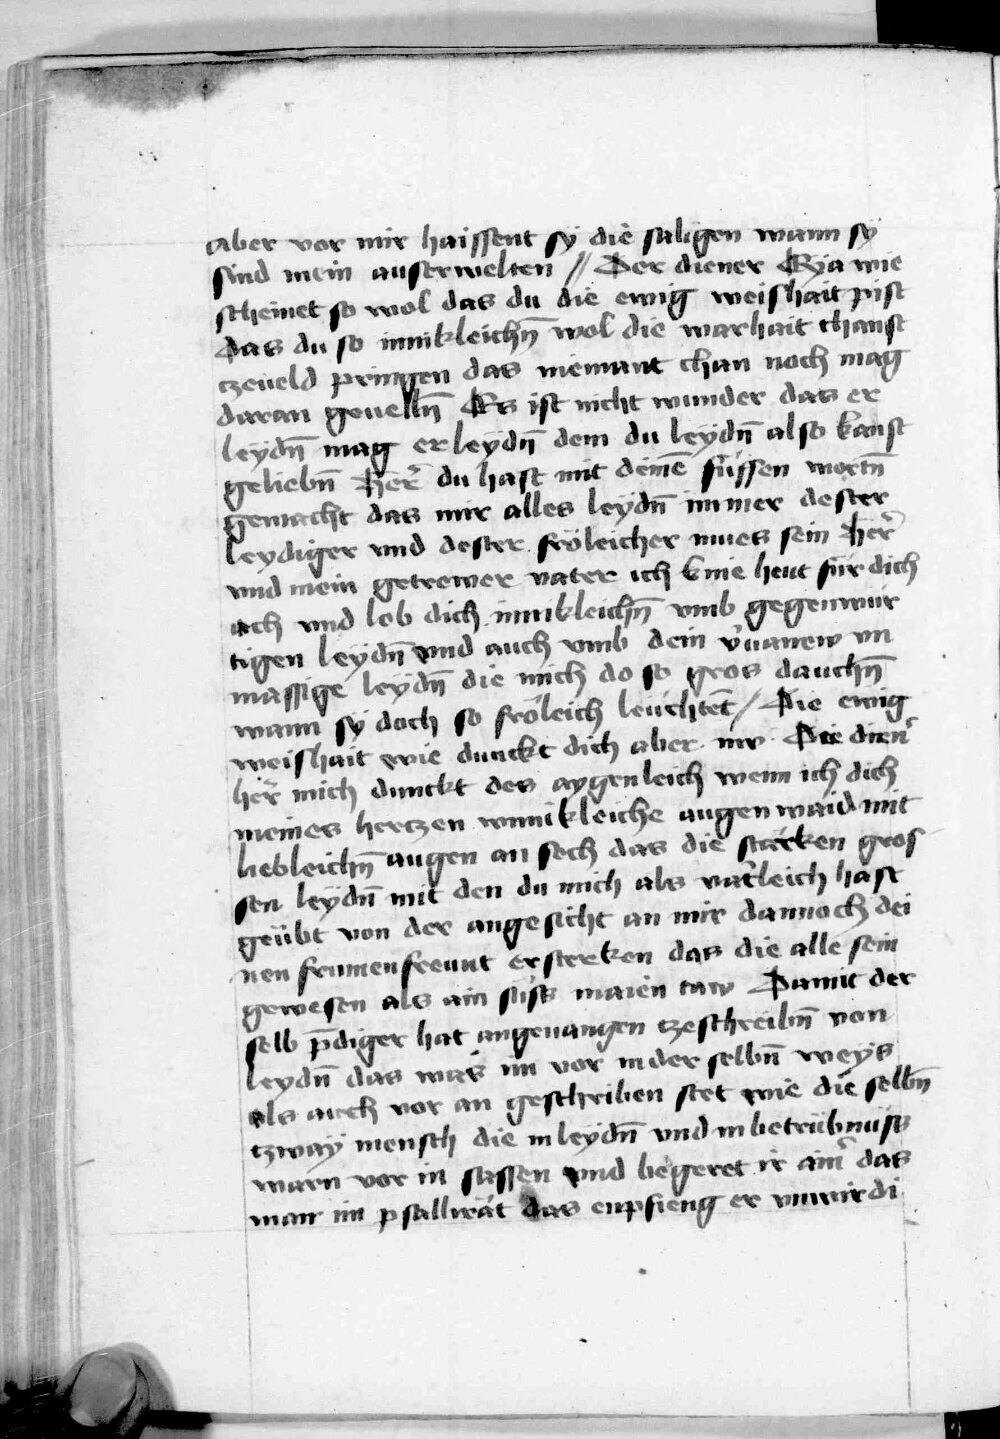 aber vor mir haissent sÿ die saligen wann sÿ
sind mein auserwelten // Der diener Eya wie
scheinet so wol das du die ewig weishait pist
Das du so innikleichn̄ wol die warhait chanst
tzeueld pringen das niemant chan noch mag
daran geuelln̄ Es ist nicht wunder das er
leÿdn̄ mag erleÿdn̄ dem du leÿdn̄ also kanst
geliebn̄ Her̄ du hast mit deinē süssen wortn̄
gemacht das mir alles leÿdn̄ immer dester
leydiger vnd dester fröleicher mues sein her̄
vnd mein getrewer vater ich knie heut für dich
ach vnd lob dich innikleichn̄ vmb gegenwür
tigen leÿdn̄ vnd auch vmb dein vn
massige leÿdn̄ die mich do so gros dauchn̄
wann sÿ doch so fröleich leuchtēt / Die ewig
weishait wie dunckt dich aber nw Die dien̄
her̄ mich dunckt des aygenleich wenn ich dich
meines hertzen wunikleiche augen waid mit
liebleichn̄ augen an sech das die starken gros
sen leÿdn̄ mit den du mich als vat̄leich hast
geübt von der angesicht an mir dannoch dei
nen frumen freunt ersterken das die alle sein
gewesen als ain süss maien taw Damit der
selb p̄diger hat angeuangen tzeschreibn̄ von
leydn̄ das was im vor in der selbn̄ weÿs
als auch vor an geschriben stet wie die selbn̄
tzwaÿ mensch die in leÿdn̄ vnd in betrübnüss
warn vor in sassen vnd begeret ir ain̄ das
man im psallirät das enpfieng er vnwirdi